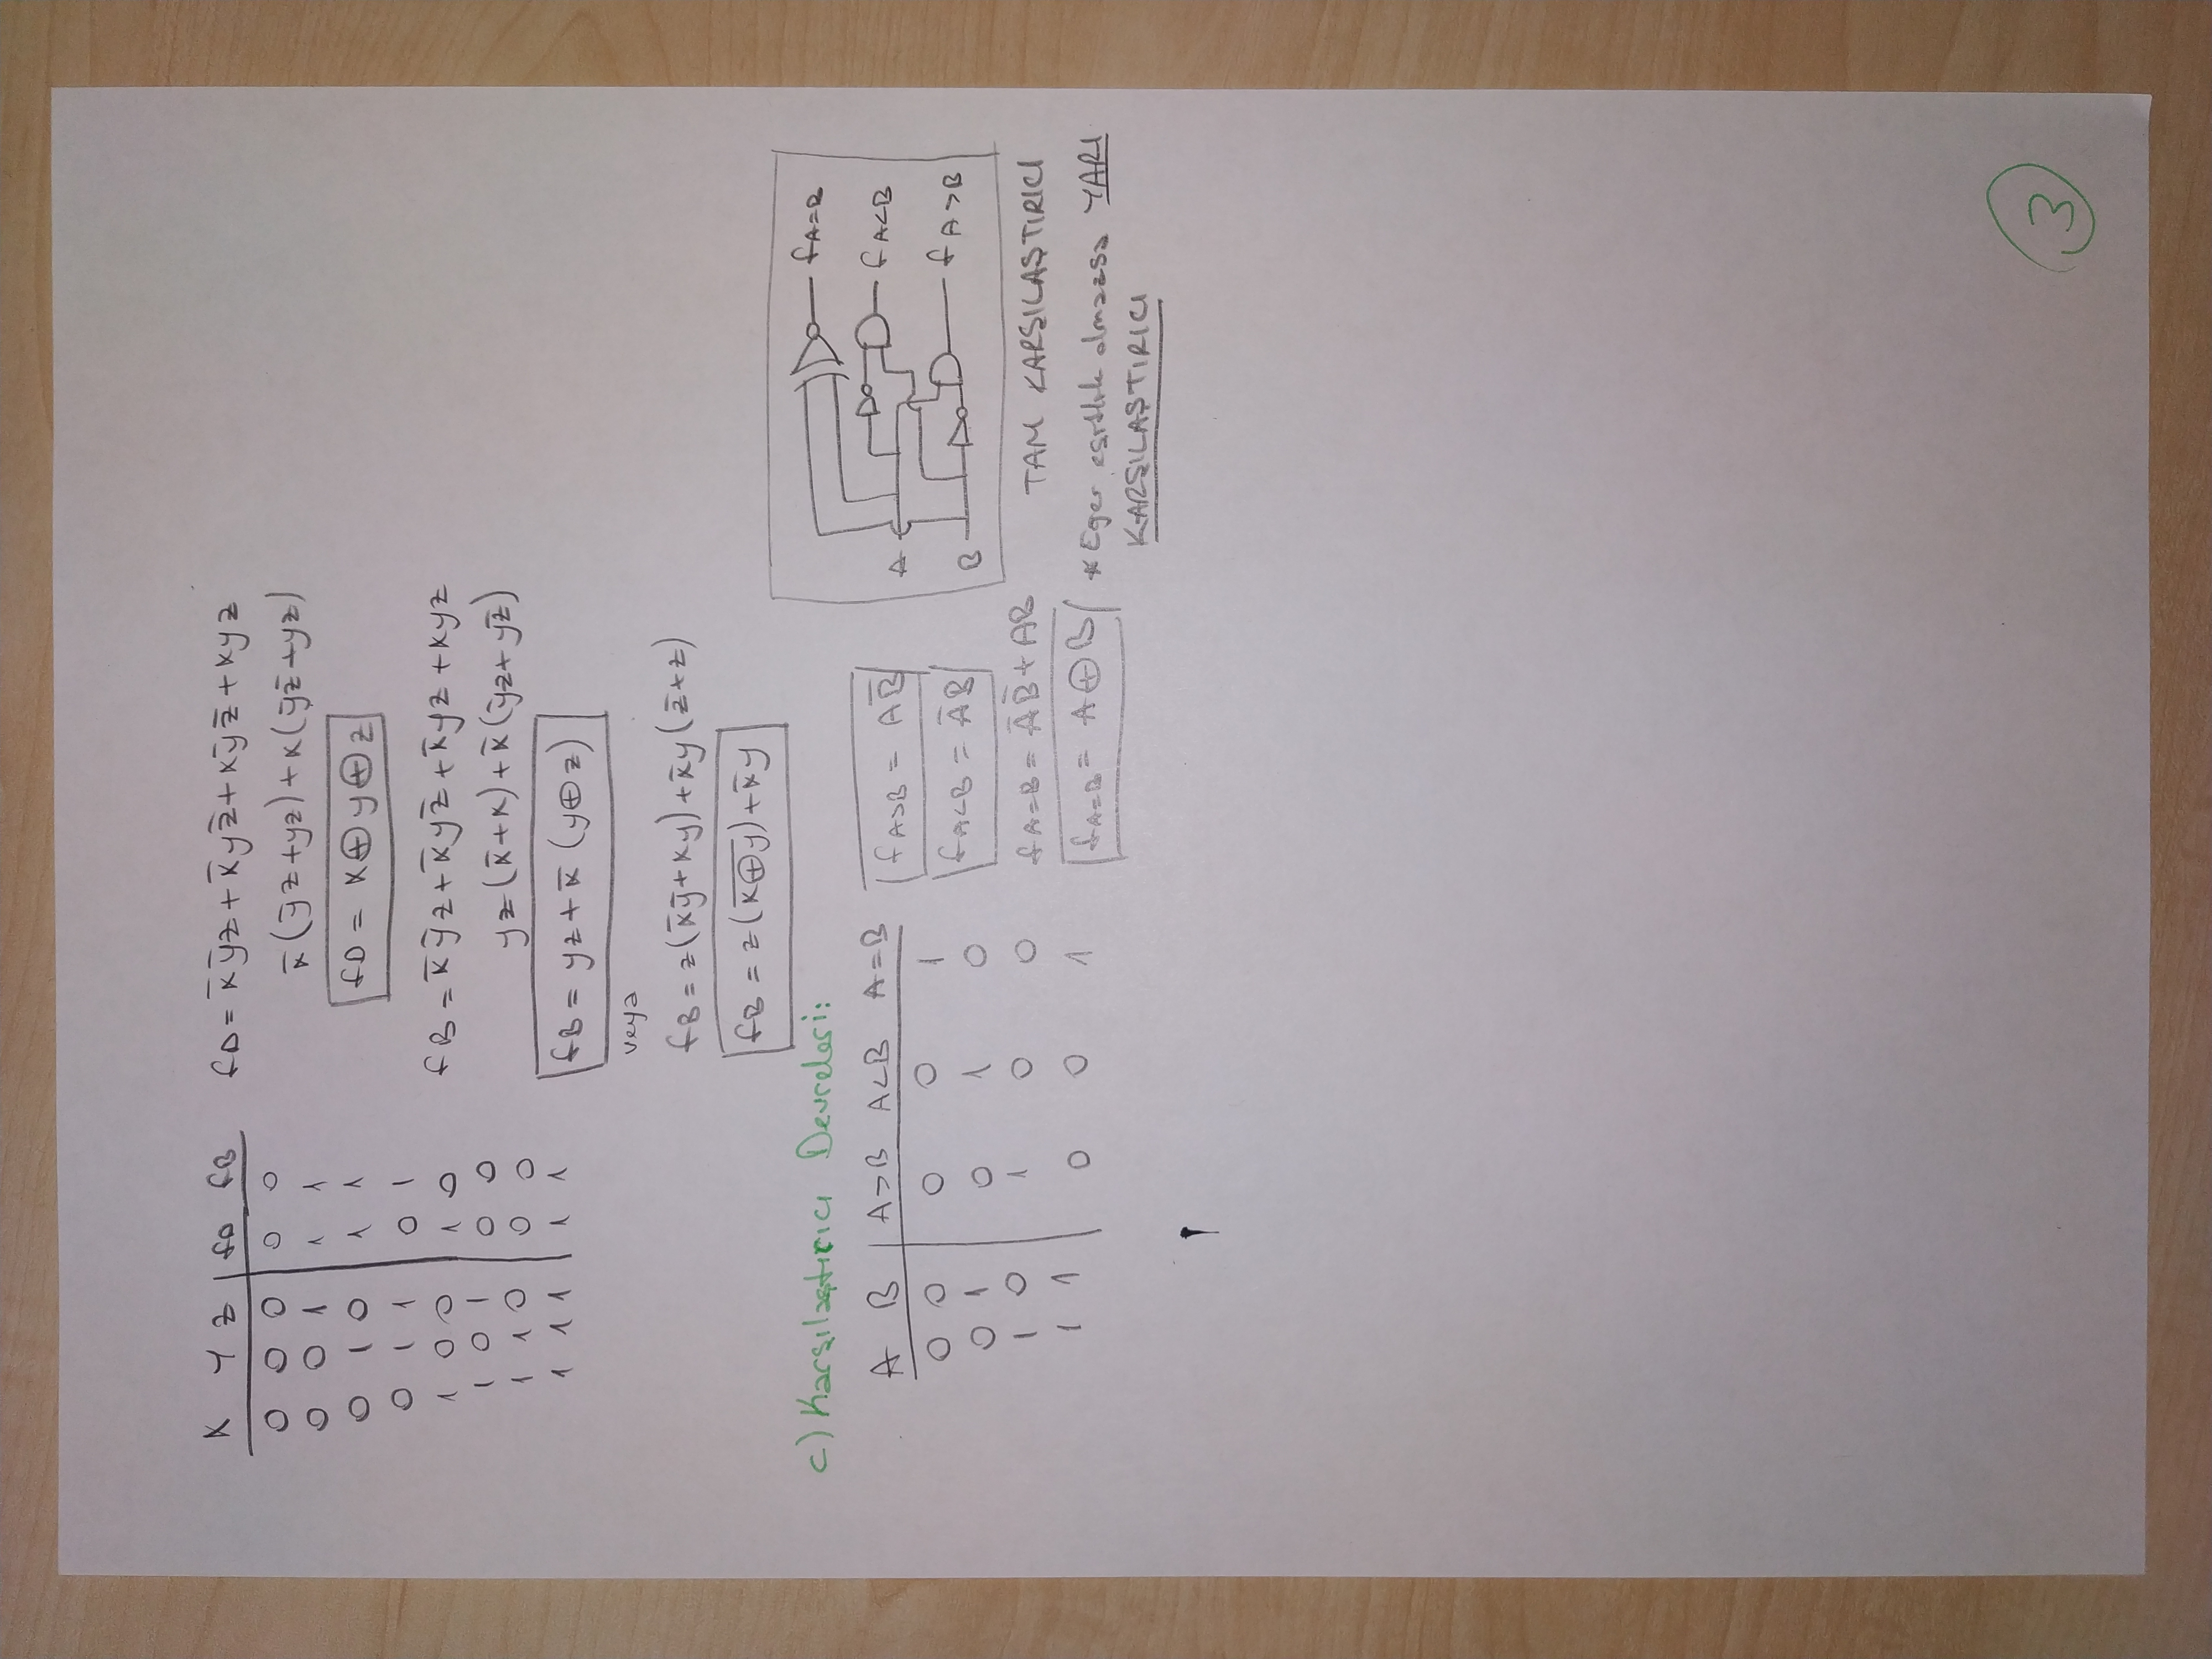 X Y Z | fD fB
0 0 0 | 0 0
0 0 1 | 1 1
0 1 0 | 1 1
0 1 1 | 0 1
1 0 0 | 1 0
1 0 1 | 0 0
1 1 0 | 0 0
1 1 1 | 1 1
fD = x̄ȳz + x̄yz̄ + xȳz̄ + xyz
x̄(ȳz + yz) + x(ȳz̄ + yz)
fD = x⊕y⊕z
fB = x̄ȳz + x̄yz̄ + x̄yz + xyz
yz(x̄+x) + x̄(ȳz + yz̄)
fB = yz + x̄(y⊕z)
veya
fB = z(x̄ȳ + xy) + x̄y(z̄+z)
fB = z(x̅⊕̅y̅) + x̄y
c) Karşılaştırıcı Devreleri:
A B | A>B A<B A=B
0 0 | 0 0 1
0 1 | 0 1 0
1 0 | 1 0 0
1 1 | 0 0 1
fA>B = AB̄
fA<B = ĀB
fA=B = ĀB̄ + AB
fA=B = A⊕B
A
B
fA=B
fA<B
fA>B
TAM KARŞILAŞTIRICI
* Eğer eşitlik olmazsa YARI
KARŞILAŞTIRICI
3